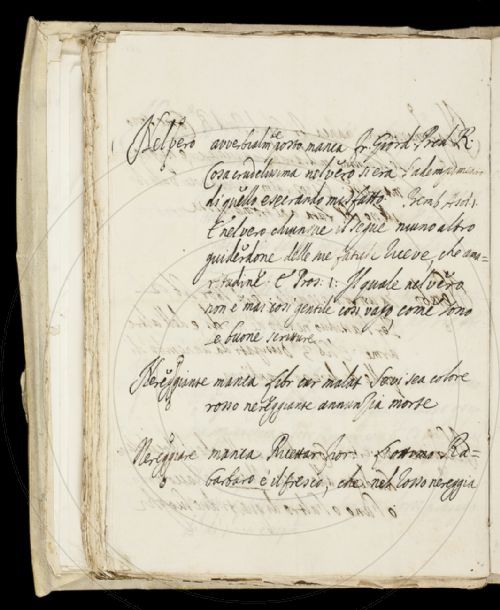 Nel vero avverbialmte posto manca fr Giord. Pred. R
Cosa crudelissima nel vero si era
di quello esecrando misfatto. Bemb. Asol. 1
E nel vero chiunque il segue niuno altro
guiderdone delle sue fatiche riceve, che ama-
ritudine. E Pros. 1. Il quale nel vero
non è mai così gentile così vago come sono
le buone scritture
Nereggiante manca libr cur malat Se vi sea colore
rosso nereggiante annunzia morte
Nereggiare manca Ricettar fior. ottimo Ra=
barbaro è il fresco, che nel rosso nereggia